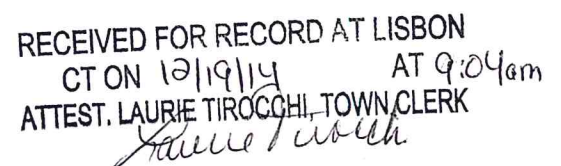 RECEIVED FOR RECORD AT LISBON
CT ON 12/19/14 AT 9:04am
ATTEST. LAURIE TIROCCHI, TOWN CLERK
Laurie Tirocchi